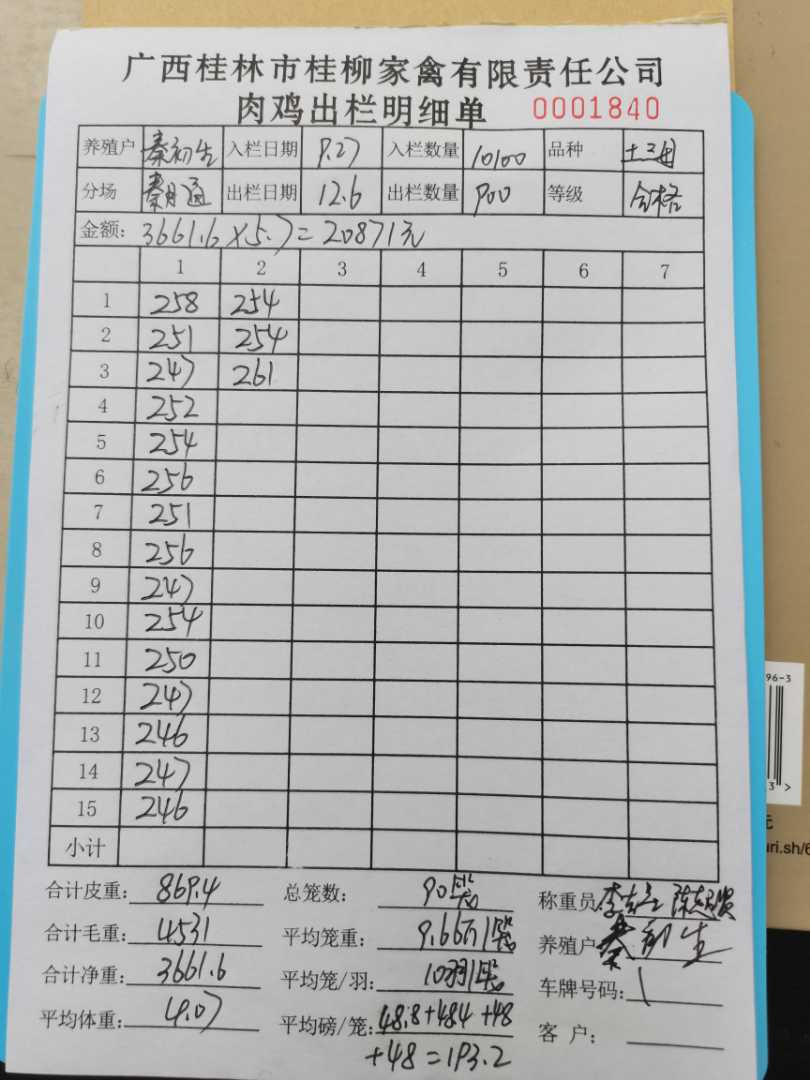 广西桂林市桂柳家禽有限责任公司
肉鸡出栏明细单 0001840
养殖户 秦初生 入栏日期 9.27 入栏数量 10100 品种 土三月
分场 秦月通 出栏日期 12.6 出栏数量 900 等级 合格
金额: 3661.6×5.7=20871元
1 2 3 4 5 6 7
1 258 254
2 251 254
3 247 261
4 252
5 254
6 256
7 251
8 256
9 247
10 254
11 250
12 247
13 246
14 247
15 246
小计
合计皮重: 869.4 总笼数: 90 称重员
合计毛重: 4531 平均笼重: 9.66 养殖户 秦初生
合计净重: 3661.6 平均笼/羽: 10羽 车牌号码:
平均体重: 4.07 平均磅/笼: 48.8+48.4+48 客户:
+48=193.2
96-3
3 >
元
uri.sh/6